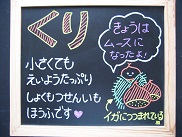 くり
小さくても
えいようたっぷり
しょくもつせんいも
ほうふです
きょうは
ムースに
なったよ!
イガにつつまれている